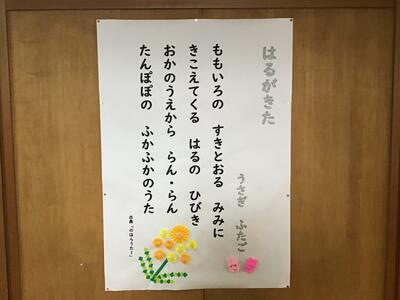 はるがきた
うさぎ ふたご
ももいろの すきとおる みみに
きこえてくる はるの ひびき
おかのうえから らん・らん
たんぽぽの ふかふかのうた
出典「のはらうたⅠ」